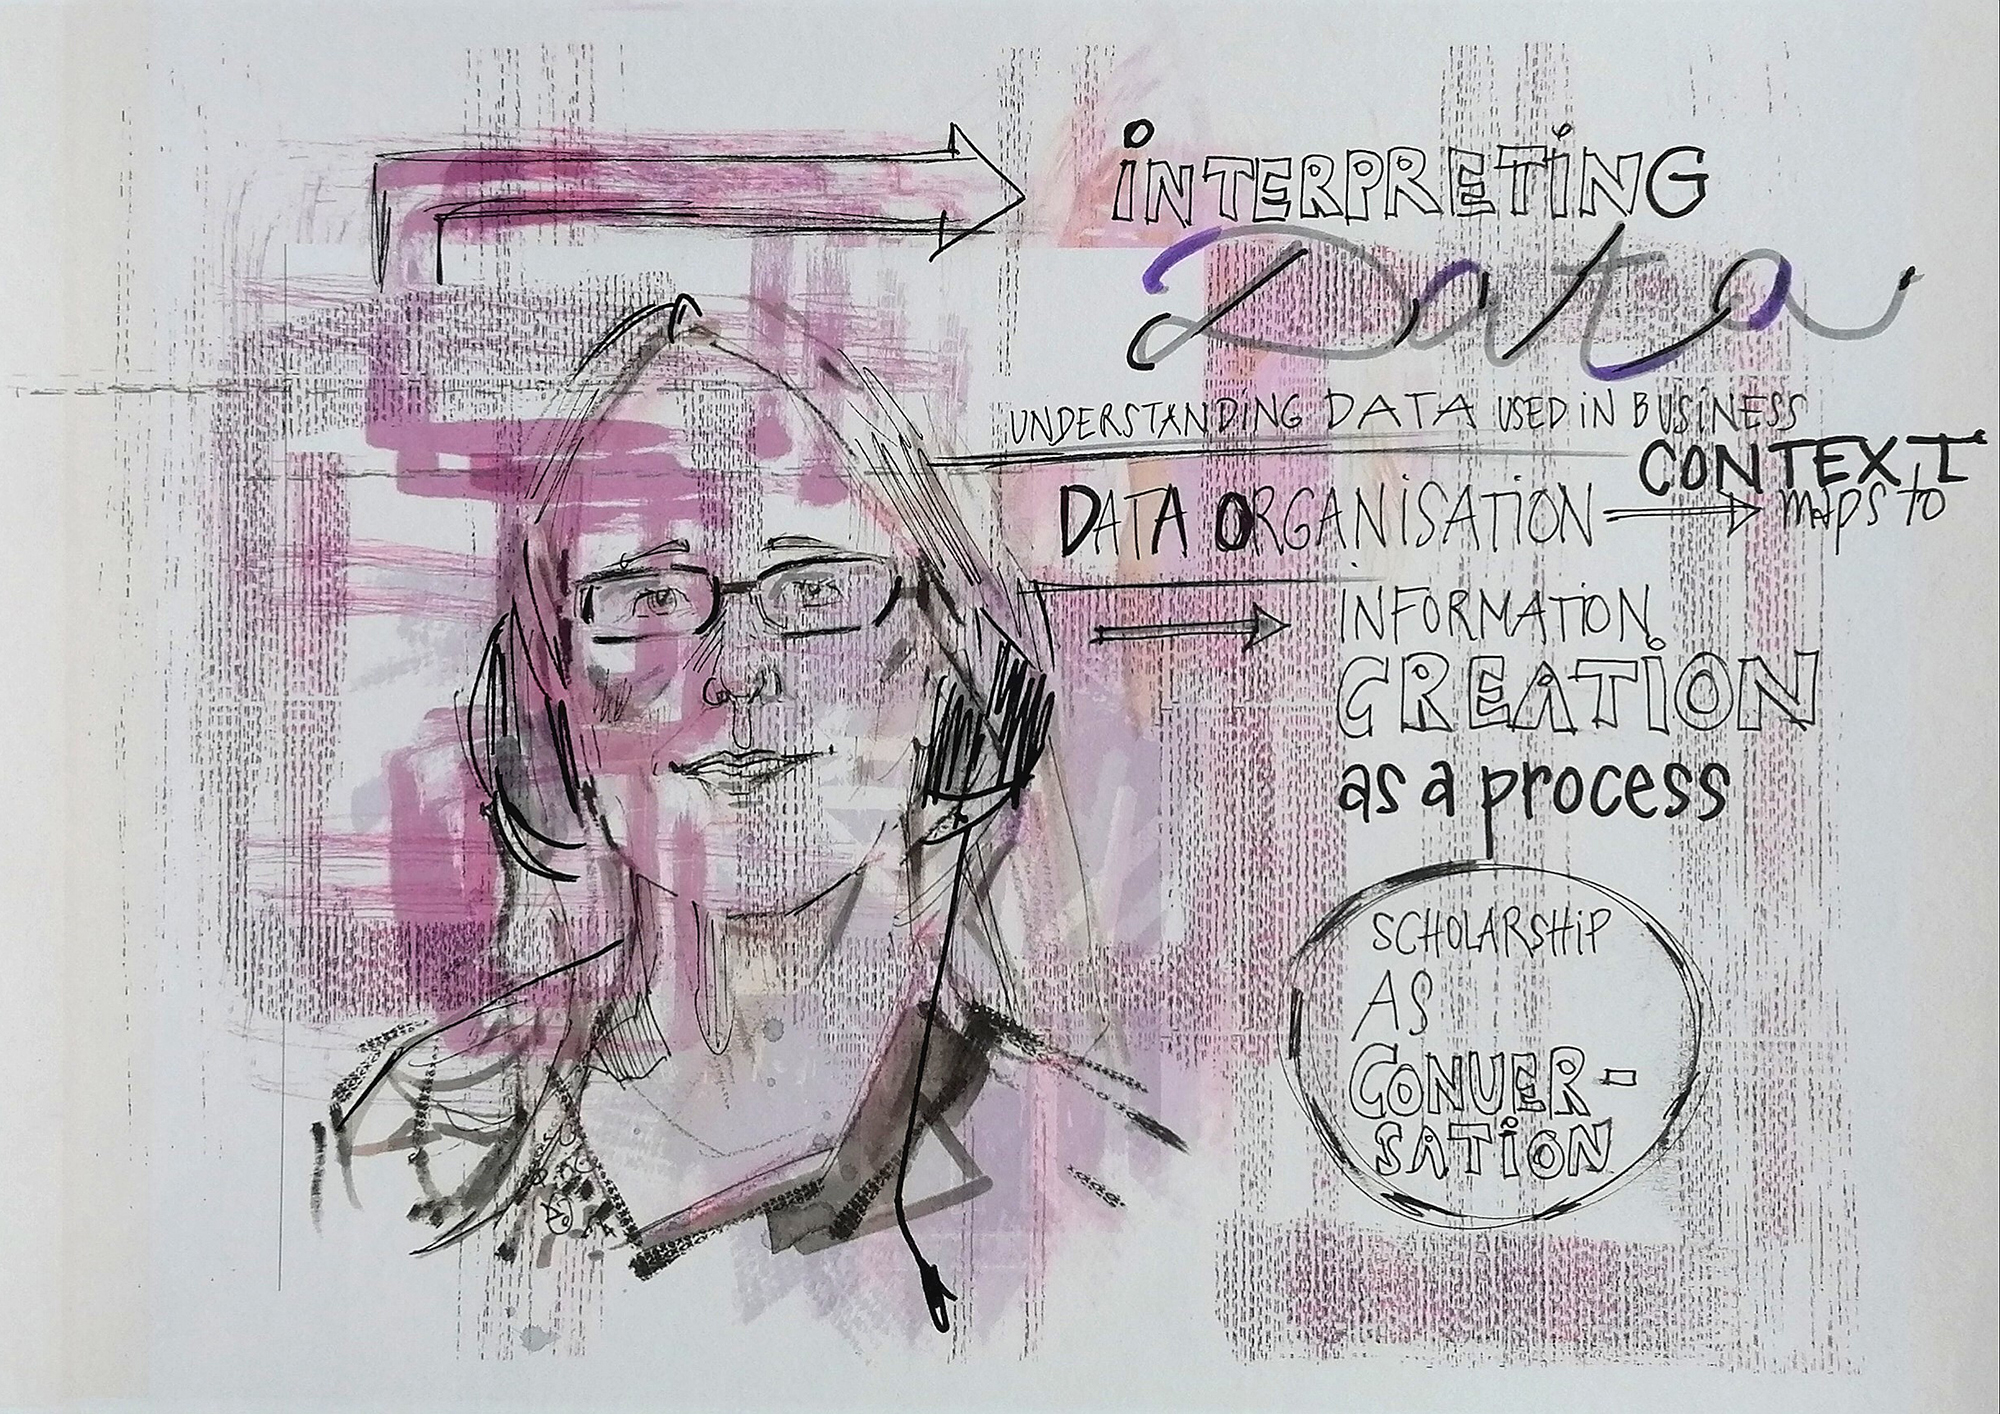 iNTERPRETiNG
Data
UNDERSTANDING DATA USED iN BUSiNESS
CONTEXT
DATA ORGANiSATiON → maps to
→ iNFORMATiON
CREATiON
as a process
SCHOLARSHiP
AS
CONVER-
SATiON